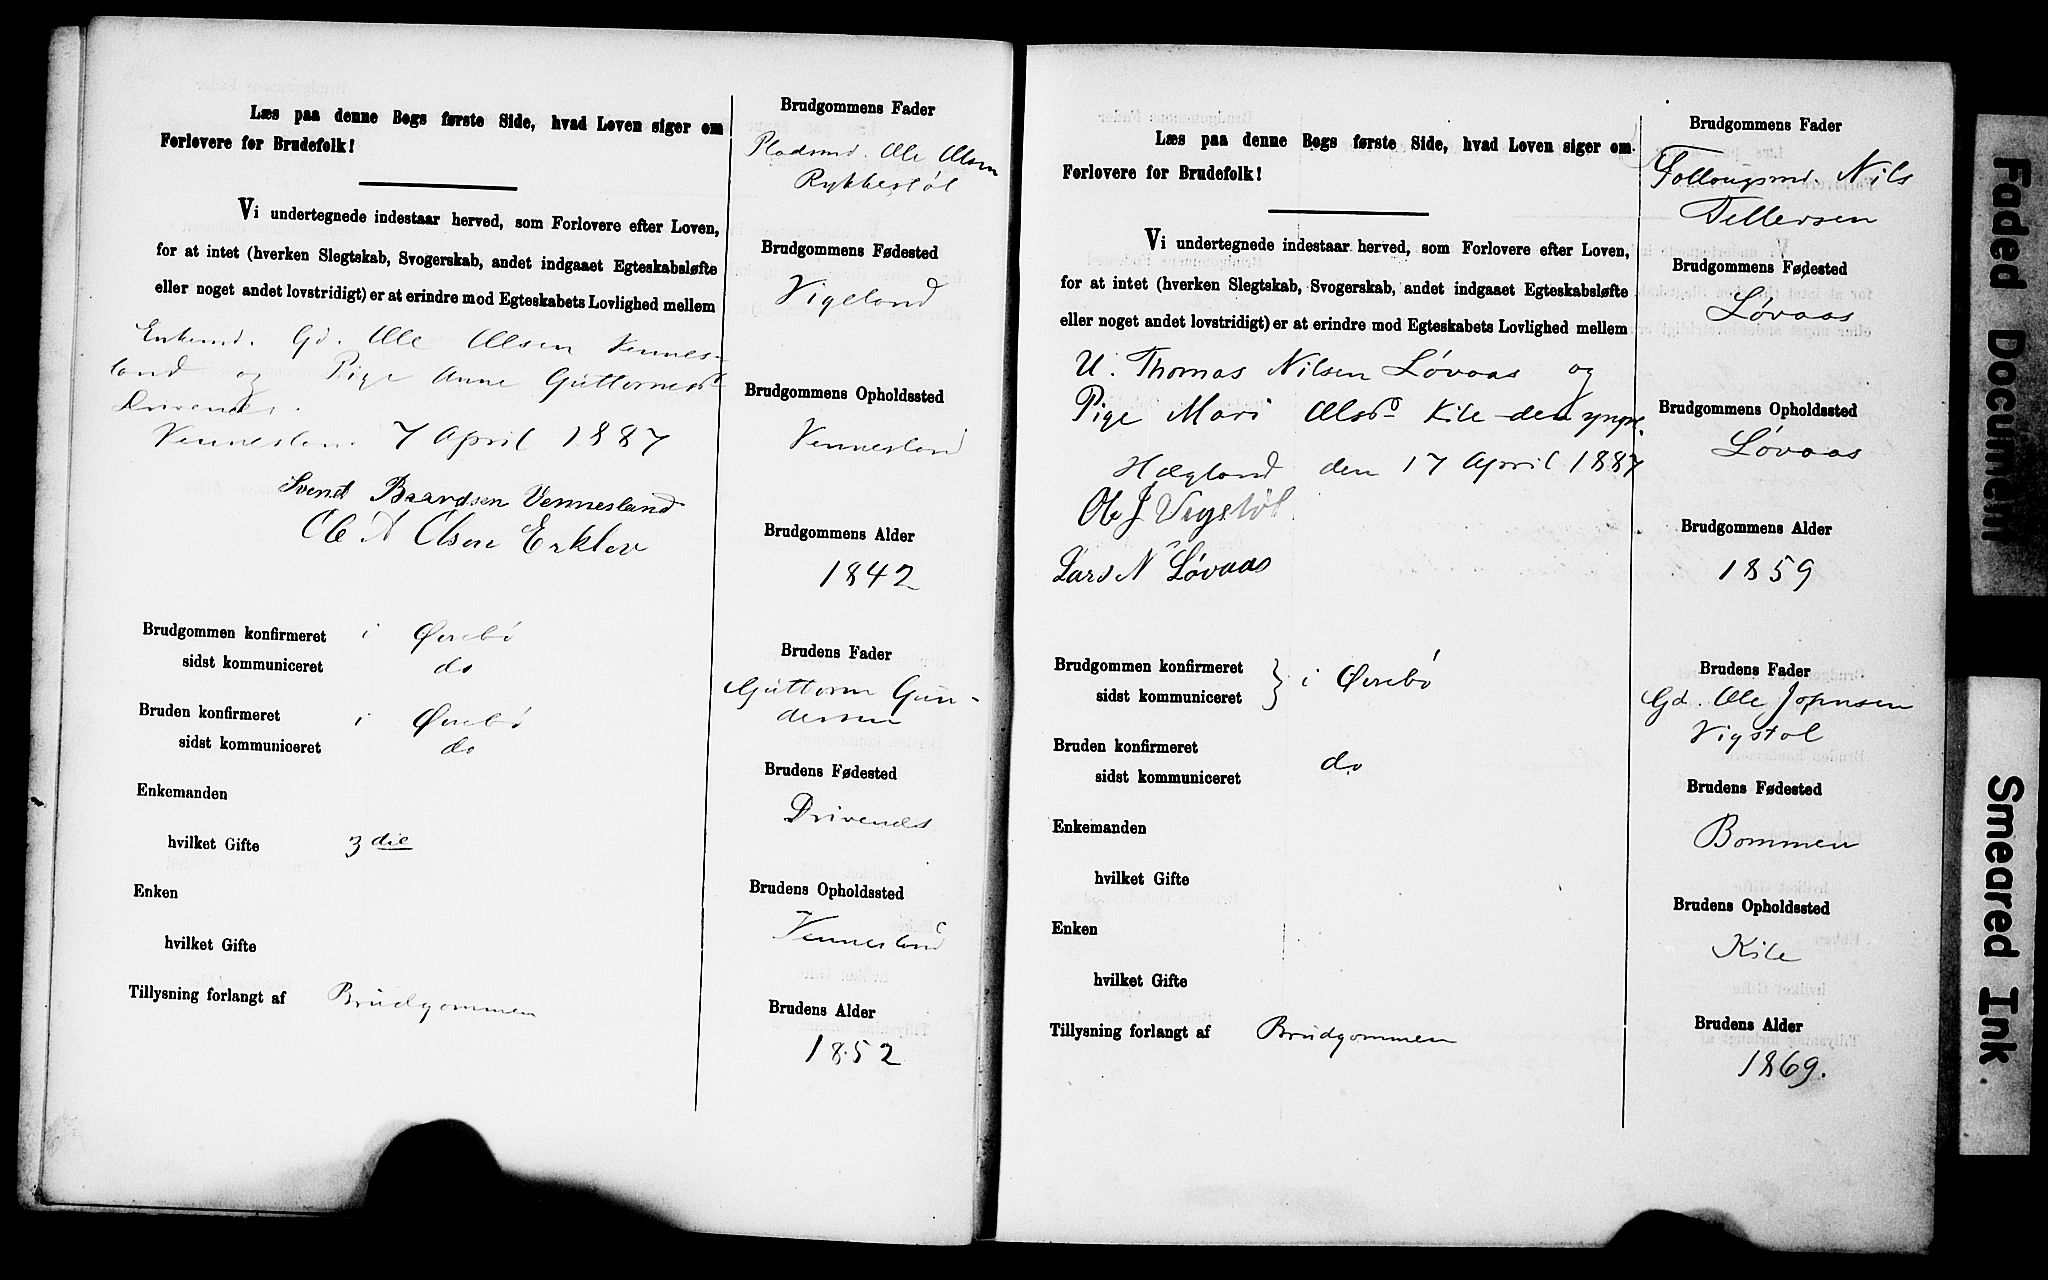 Læs paa denne Bogs første Side, hvad Loven siger om
Forlovere for Brudefolk!
Vi undertegnede indestaar herved, som Forlovere efter Loven,
for at intet (hverken Slegtskab, Svogerskab, andet indgaaet Egteskabsløfte
eller noget andet lovstridigt) er at erindre mod Egteskabets Lovlighed mellem
Enkemd. Gd. Ole Olsen Vennes-
land og Pige Anne Guttormsd
Drivenes.
Vennesland 7 April 1887
Svend Baardsen Vennesland
Ole A Olsen Erklev
Brudgommen konfirmeret i Øvrebø
sidst kommuniceret do
Bruden konfirmeret i Øvrebø
sidst kommuniceret do
Enkemanden
hvilket Gifte 3 die
Enken
hvilket Gifte
Tillysning forlangt af Brudgommen
Brudgommens Fader
Pladsmd. Ole Olsen
Rykkestøl
Brudgommens Fødested
Vigeland
Brudgommens Opholdssted
Vennesland
Brudgommens Alder
1842
Brudens Fader
Guttorm Gun-
dersen
Brudens Fødested
Drivenes
Brudens Opholdssted
Vennesland
Brudens Alder
1852
Læs paa denne Bogs første Side, hvad Loven siger om
Forlovere for Brudefolk!
Vi undertegnede indestaar herved, som Forlovere efter Loven,
for at intet (hverken Slegtskab, Svogerskab, andet indgaaet Egteskabsløfte
eller noget andet lovstridigt) er at erindre mod Egteskabets Lovlighed mellem
U. Thomas Nilsen Løvaas og
Pige Mari Olsd Kile den yngre.
Hægland den 17 April 1887
Ole J Vigstøl
Lars N Løvaas
Brudgommen konfirmeret
sidst kommuniceret } i Øvrebø
Bruden konfirmeret
sidst kommuniceret do
Enkemanden
hvilket Gifte
Enken
hvilket Gifte
Tillysning forlangt af Brudgommen
Brudgommens Fader
Følaugsmd. Nils
Tellefsen
Brudgommens Fødested
Løvaas
Brudgommens Opholdssted
Løvaas
Brudgommens Alder
1859
Brudens Fader
Gd. Ole Johnsen
Vigstøl
Brudens Fødested
Bommen
Brudens Opholdssted
Kile
Brudens Alder
1869.
Faded Document
Smeared Ink